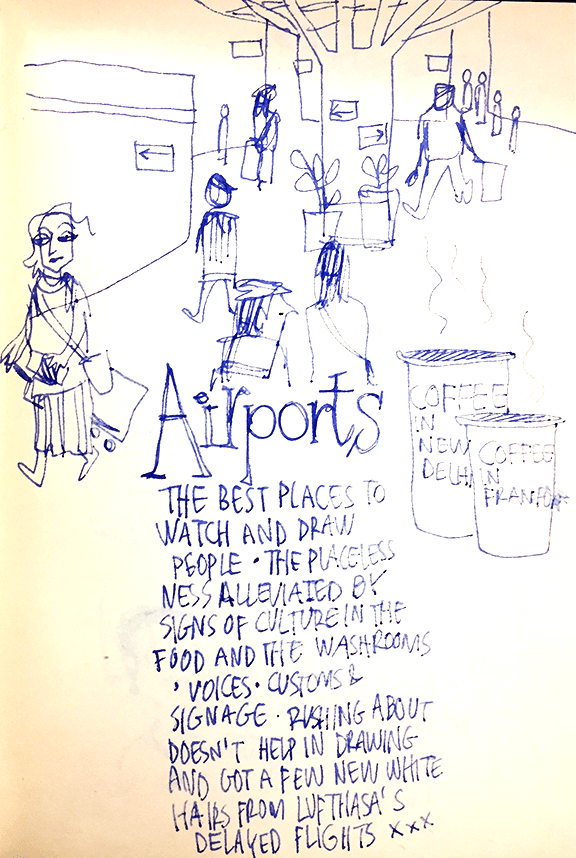 Airports
COFFEE
IN
NEW
DELHI
COFFEE
IN
FRANFORT
THE BEST PLACES TO
WATCH AND DRAW
PEOPLE • THE PLACELESS
NESS ALLEVIATED BY
SIGNS OF CULTURE IN THE
FOOD AND THE WASHROOMS
• VOICES • CUSTOMS &
SIGNAGE • RUSHING ABOUT
DOESN'T HELP IN DRAWING
AND GOT A FEW NEW WHITE
HAIRS FROM LUFTHASA'S
DELAYED FLIGHTS xxx